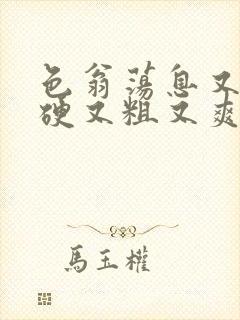 色翁荡息又
硬又粗又爽
馬玉權